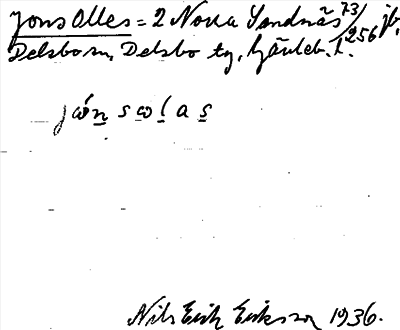 Jons Olles = 2 Norra Sandnäs 73/256 jb,
Delsbo sn, Delsbo tg, Gävleb. l.
jώn sωlas
Nils Erik Eriksson 1936.